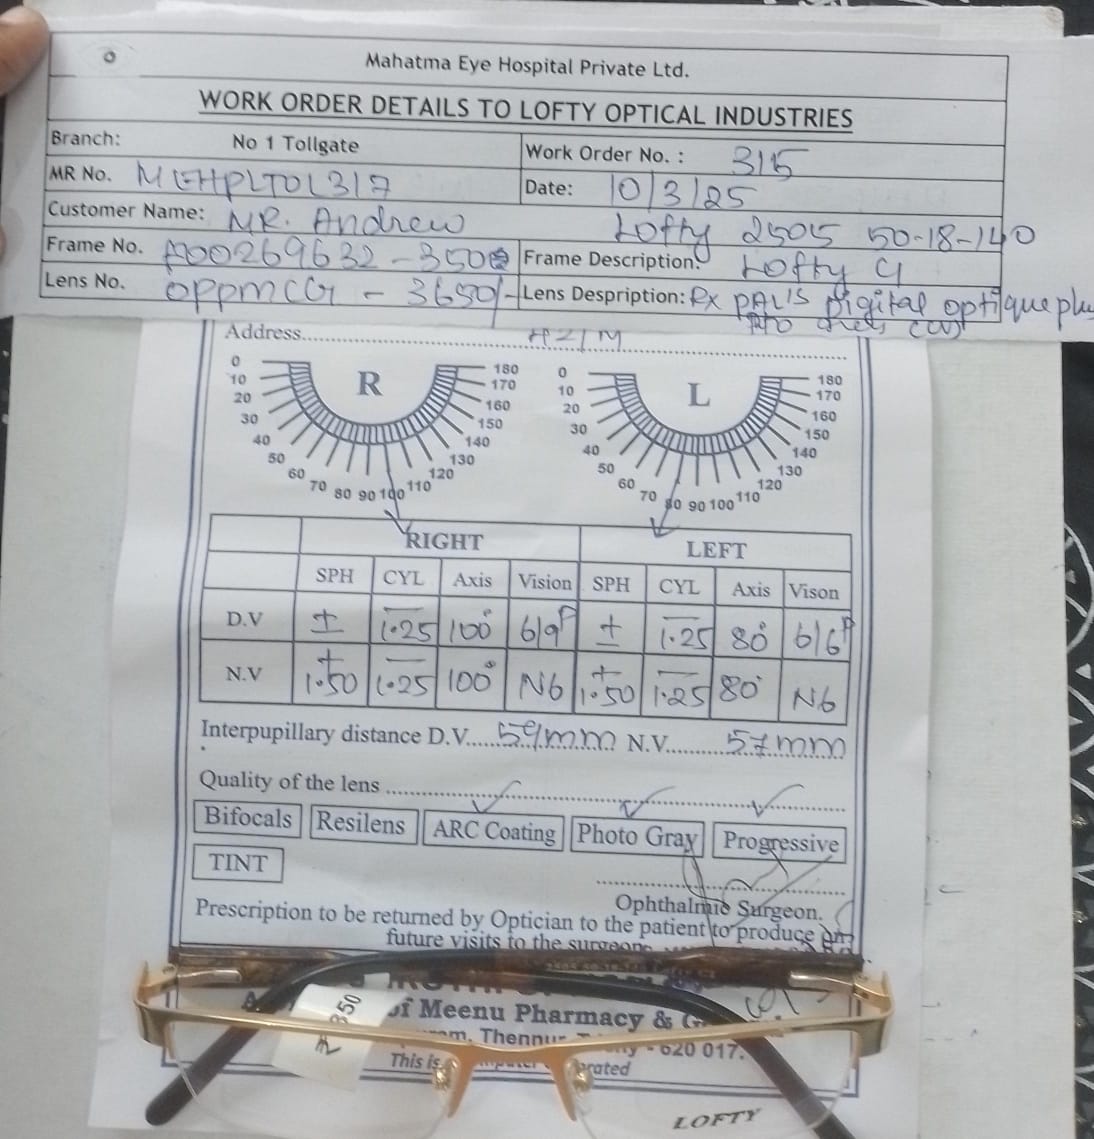 Mahatma Eye Hospital Private Ltd.
WORK ORDER DETAILS TO LOFTY OPTICAL INDUSTRIES
Branch: No 1 Tollgate Work Order No. : 3115
MR No. MEHPLTOL317 Date: 10/3/25
Customer Name: MR. Andrew Lofty 2505 50-18-140
Frame No. A00269632 - 350 Frame Description: Lofty
Lens No. OPPMCG - 3650/- Lens Despription: Rx PAL'S Digital optique plu
Address
R
0 10 20 30 40 50 60 70 80 90 100 110 120 130 140 150 160 170 180
L
0 10 20 30 40 50 60 70 80 90 100 110 120 130 140 150 160 170 180
RIGHT LEFT
SPH CYL Axis Vision SPH CYL Axis Vison
D.V ± -1.25 100° 6/9P ± -1.25 80° 6/6P
N.V +1.50 -1.25 100° N6 +1.50 -1.25 80° N6
Interpupillary distance D.V. 59mm N.V. 57mm
Quality of the lens ✓ ✓ ✓
Bifocals Resilens ARC Coating Photo Gray Progressive
TINT
Ophthalmic Surgeon.
Prescription to be returned by Optician to the patient to produce on
future visits to the surgeon
of Meenu Pharmacy &
Thennur - 620 017.
This is
350
LOFTY